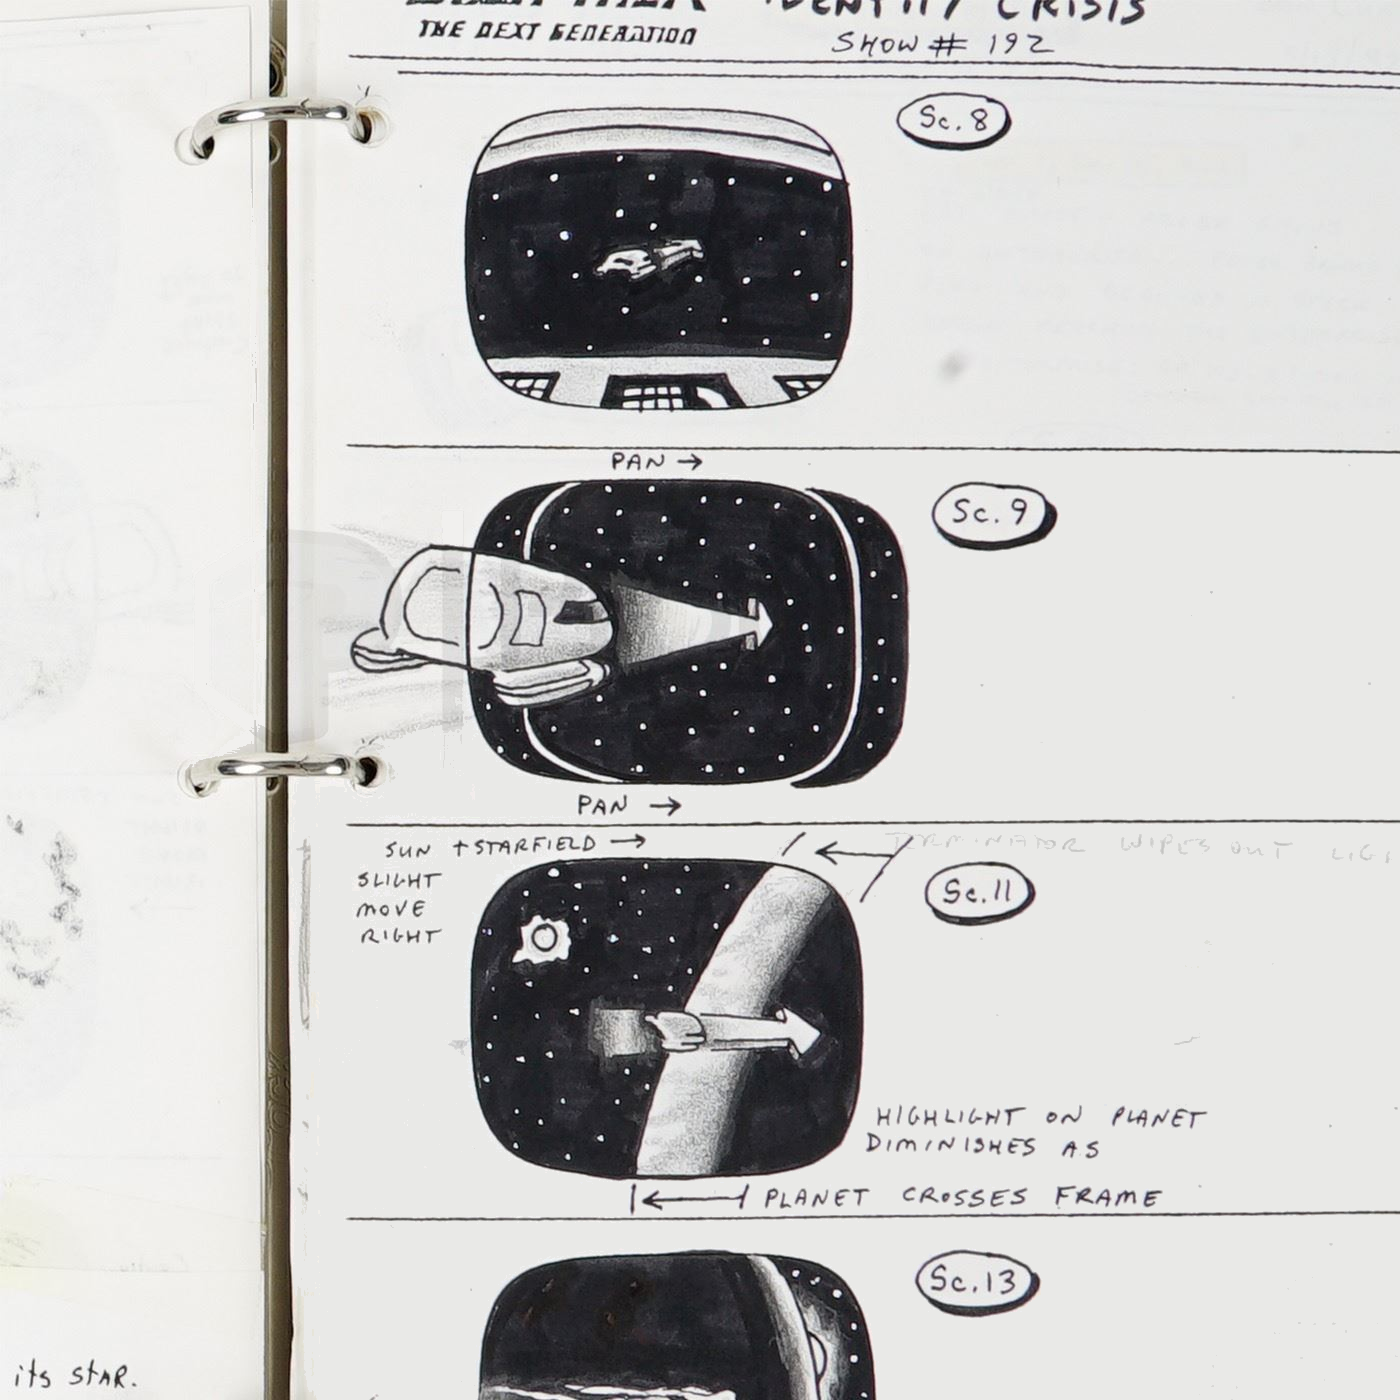 IDENTITY CRISIS
THE NEXT GENERATION
SHOW # 192
Sc. 8
PAN →
Sc. 9
PAN →
SUN + STARFIELD →
SLIGHT
MOVE
RIGHT
TERMINATOR WIPES OUT
Sc. 11
HIGHLIGHT ON PLANET
DIMINISHES AS
PLANET CROSSES FRAME
Sc. 13
its STAR.